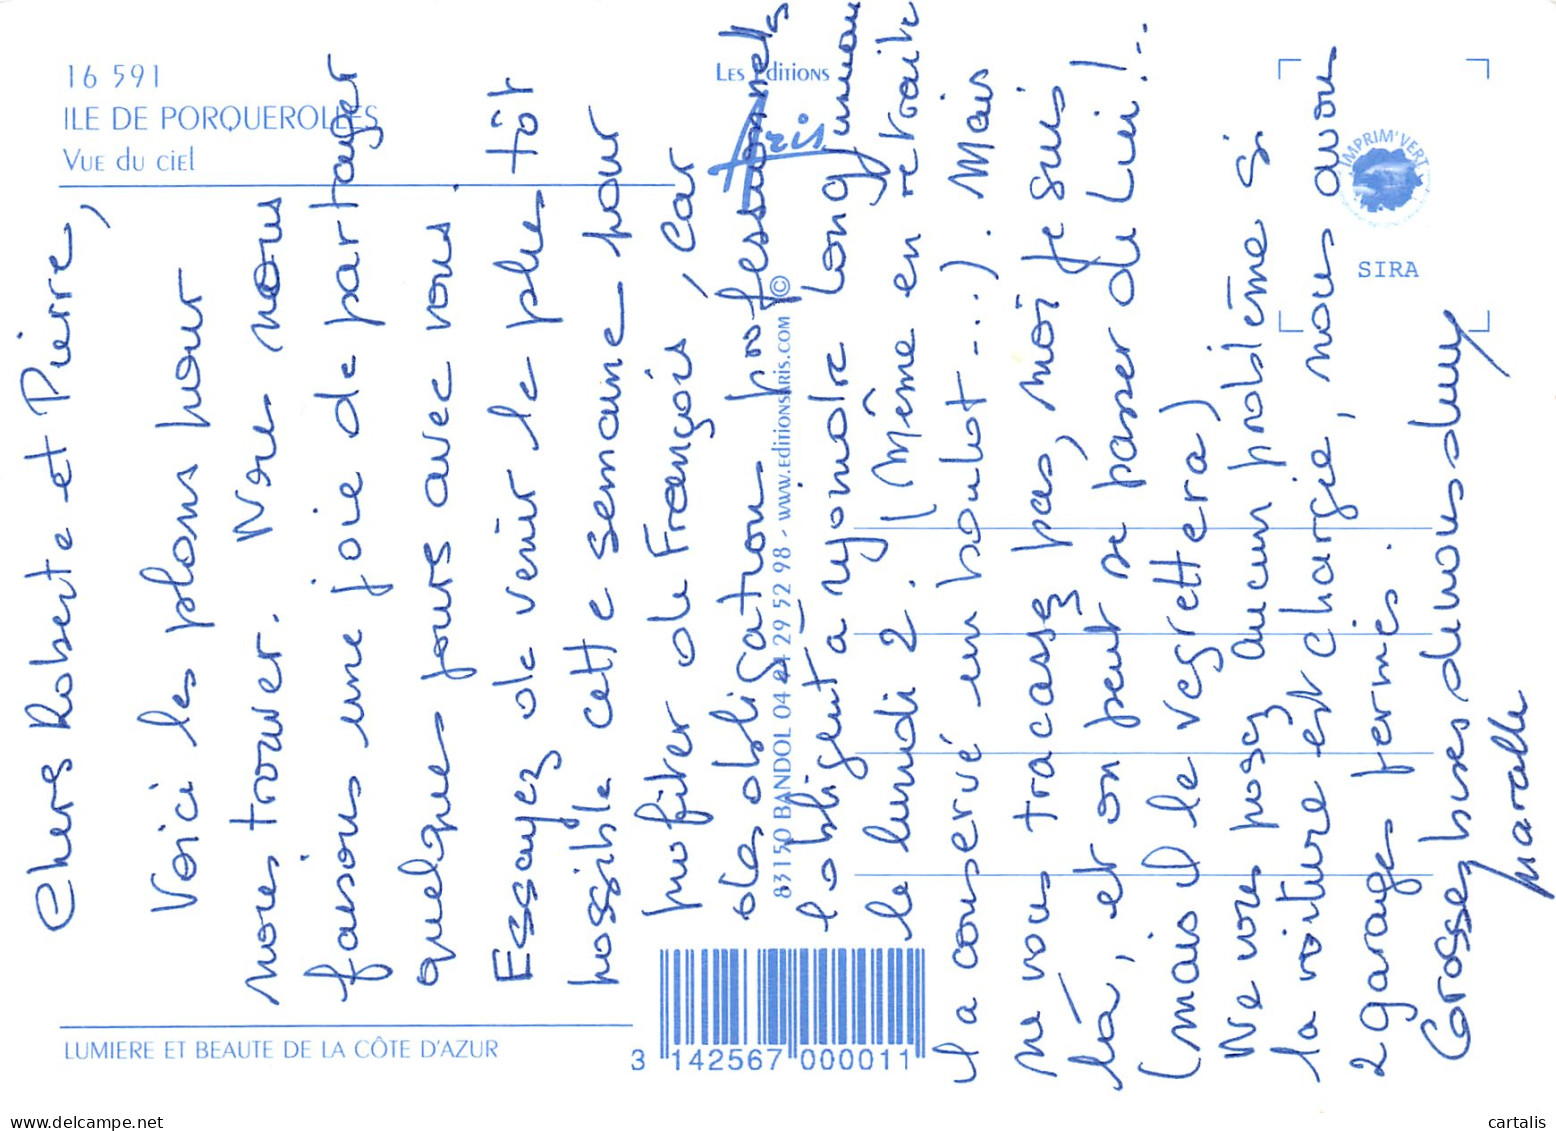 16 591
ILE DE PORQUEROLLES
VUE DU CIEL
LES Editions
Aris
IMPRIM'VERT
SIRA
83150 BANDOL 04 94 29 52 98 - WWW.EDITIONSARIS.COM ©
LUMIERE ET BEAUTE DE LA CÔTE D'AZUR
3 142567 000011
Chers Roberte et Pierre,
Voici les plans pour
nous trouver. Nre nous
faisons une joie de partager
quelques jours avec vous.
Essayez de venir le plus tôt
possible cette semaine pour
profiter de François, car
des obligations professionnels
l'obligent à rejoindre Longjumeau
le lundi 2. (Même en retraite
il a conservé un boulot...). Mais
ne vous tracassez pas, moi je suis
là, et on peut se passer de Lui!..
(mais il le regrettera)
Ne vous posez aucun problème si
la voiture est chargée, nous avons
2 garages fermés.
Grosses bises de nous deux
Marcelle
delcampe.net
cartalis